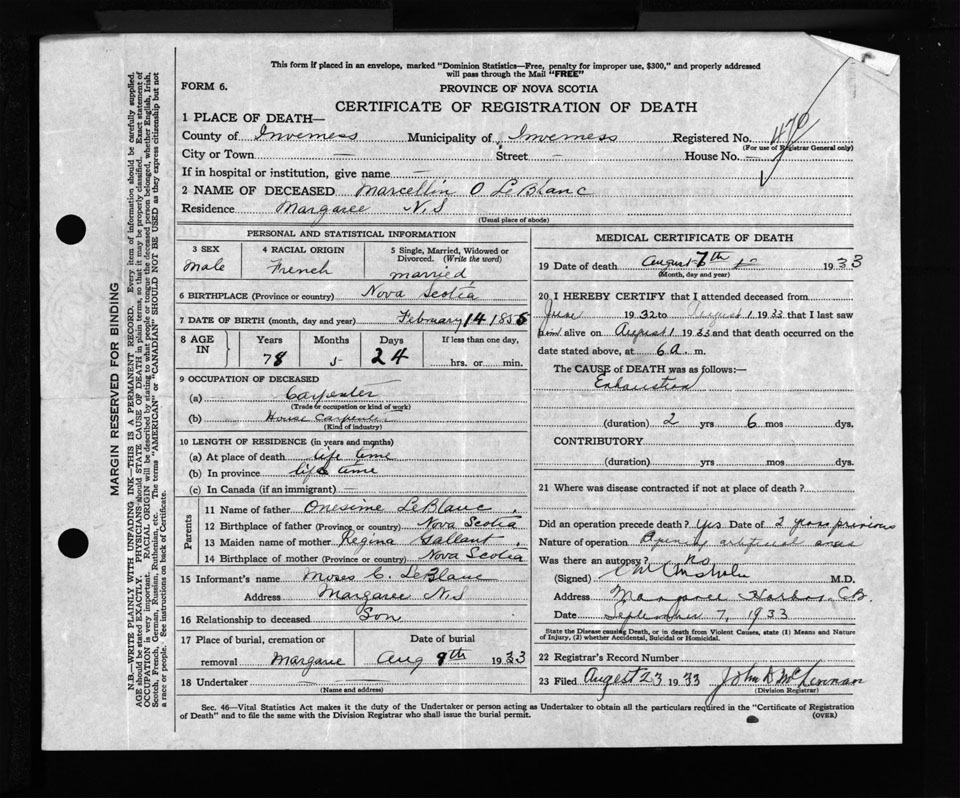 This form if placed in an envelope, marked "Dominion Statistics—Free, penalty for improper use, $300," and properly addressed
will pass through the Mail "FREE"
FORM 6.
PROVINCE OF NOVA SCOTIA
CERTIFICATE OF REGISTRATION OF DEATH
1 PLACE OF DEATH—
County of Inverness Municipality of Inverness Registered No. 470
(For use of Registrar General only)
City or Town — Street — House No. —
If in hospital or institution, give name —
2 NAME OF DECEASED Marcellin O LeBlanc
Residence Margaree N.S
(Usual place of abode)
PERSONAL AND STATISTICAL INFORMATION
3 SEX Male
4 RACIAL ORIGIN French
5 Single, Married, Widowed or
Divorced. (Write the word)
married
6 BIRTHPLACE (Province or country) Nova Scotia
7 DATE OF BIRTH (month, day and year) February 14 1855
8 AGE IN Years Months Days If less than one day,
78 5 24 hrs. or min.
9 OCCUPATION OF DECEASED
(a) Carpenter
(Trade or occupation or kind of work)
(b) House Carpenter
(Kind of industry)
10 LENGTH OF RESIDENCE (in years and months)
(a) At place of death life time
(b) In province life time
(c) In Canada (if an immigrant) —
Parents
11 Name of father Onesime LeBlanc
12 Birthplace of father (Province or country) Nova Scotia
13 Maiden name of mother Regina Gallant
14 Birthplace of mother (Province or country) Nova Scotia
15 Informant's name Moses C. LeBlanc
Address Margaree N.S
16 Relationship to deceased Son
17 Place of burial, cremation or Date of burial
removal Margaree Aug 9th 1933
18 Undertaker
(Name and address)
MEDICAL CERTIFICATE OF DEATH
19 Date of death August 7th 1933
(Month, day and year)
20 I HEREBY CERTIFY that I attended deceased from
June 1932 to August 1 1933 that I last saw
him alive on August 1 1933 and that death occurred on the
date stated above, at 6 a. m.
The CAUSE of DEATH was as follows:—
Exhaustion
(duration) 2 yrs 6 mos dys.
CONTRIBUTORY
(duration) yrs. mos. dys.
21 Where was disease contracted if not at place of death?
Did an operation precede death? Yes Date of 2 years previous
Nature of operation artificial
Was there an autopsy? No
(Signed) M.D.
Address Margaree Harbor, C.B.
Date September 7, 1933
State the Disease causing Death, or in death from Violent Causes, state (1) Means and Nature
of Injury, (2) whether Accidental, Suicidal or Homicidal.
22 Registrar's Record Number
23 Filed August 23 1933 John D McLennan
(Division Registrar)
Sec. 46—Vital Statistics Act makes it the duty of the Undertaker or person acting as Undertaker to obtain all the particulars required in the "Certificate of Registration
of Death" and to file the same with the Division Registrar who shall issue the burial permit.
(OVER)
MARGIN RESERVED FOR BINDING
N.B.—WRITE PLAINLY WITH UNFADING INK—THIS IS A PERMANENT RECORD. Every item of information should be carefully supplied.
AGE should be stated EXACTLY. PHYSICIANS should STATE CAUSE OF DEATH in plain terms, so that it may be properly classified. Exact statement of
OCCUPATION is very important. RACIAL ORIGIN will be described by stating to what people or tongue the deceased person belonged, whether English, Irish,
Scotch, French, German, Russian, Ruthenian, etc. The terms "AMERICAN" or "CANADIAN" SHOULD NOT BE USED as they express citizenship but not
a race or people. See instructions on back of Certificate.